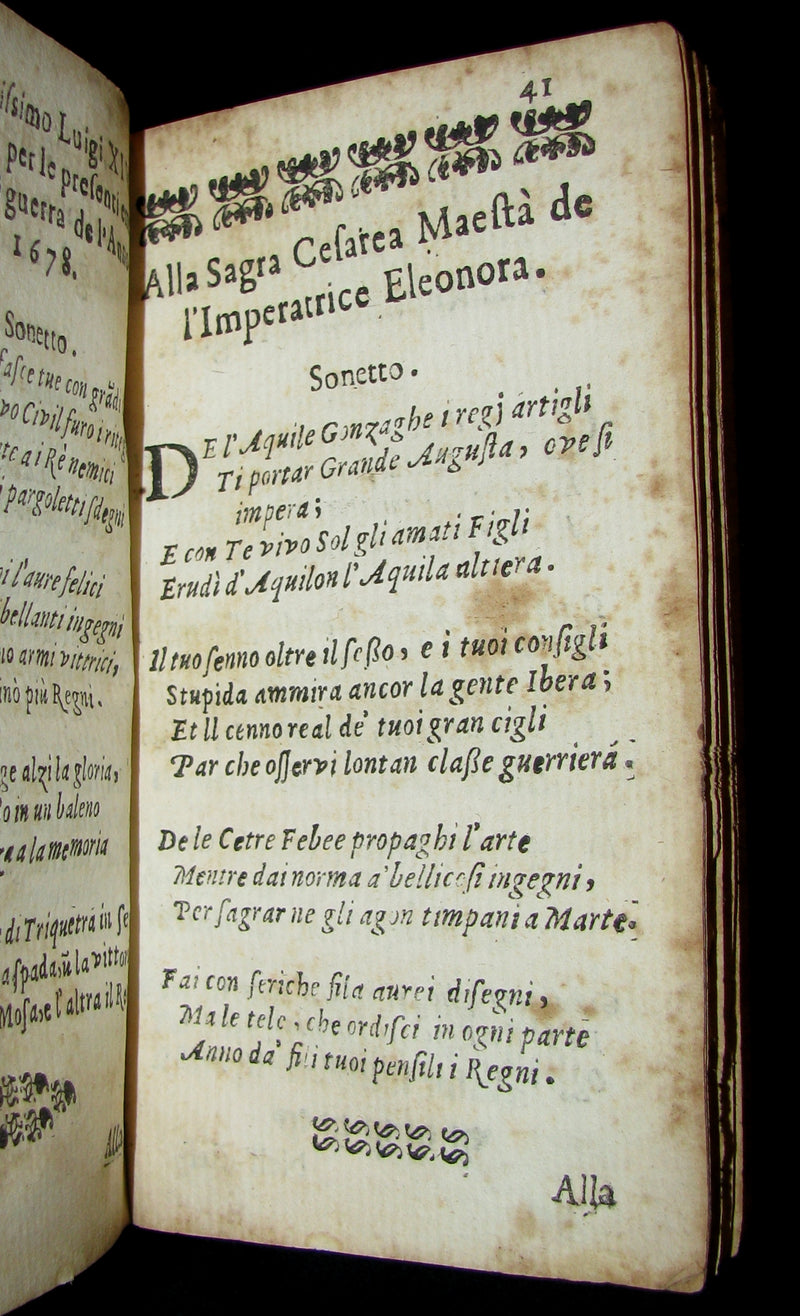 issimo Luigi XI
per le presenti
guerra de l'An
1678.
Sonetto.
asce tue con grãdi
vo Civil furo i
te a i Rè nemici
pargoletti sdegni
i l'aure felici
bellanti ingegni
no armi vittrici,
inò più Regni.
ge alzi la gloria,
o in un baleno
a la memoria
di Triquetra in se
a spada, ũ la vittor
Mosa, e l'altra il R
Alla
41
Alla Sagra Cesarea Maestà de
l'Imperatrice Eleonora.
Sonetto.
DE l'Aquile Gonzaghe i regj artigli
Ti portar Grande Augusta, ove si
impera;
E con Te vivo Sol gli amati Figli
Erudì d'Aquilon l'Aquila altiera.
Il tuo senno oltre il sesso, e i tuoi consigli
Stupida ammira ancor la gente Ibera;
Et Il cenno real de' tuoi gran cigli
Par che osservi lontan classe guerriera.
De le Cetre Febee propaghi l'arte
Mentre dai norma a' bellicosi ingegni,
Per sagrarne gli agon timpani a Marte.
Fai con seriche fila aurei disegni,
Ma le tele, che ordisci in ogni parte
Anno da' fili tuoi pensili i Regni.
Alla